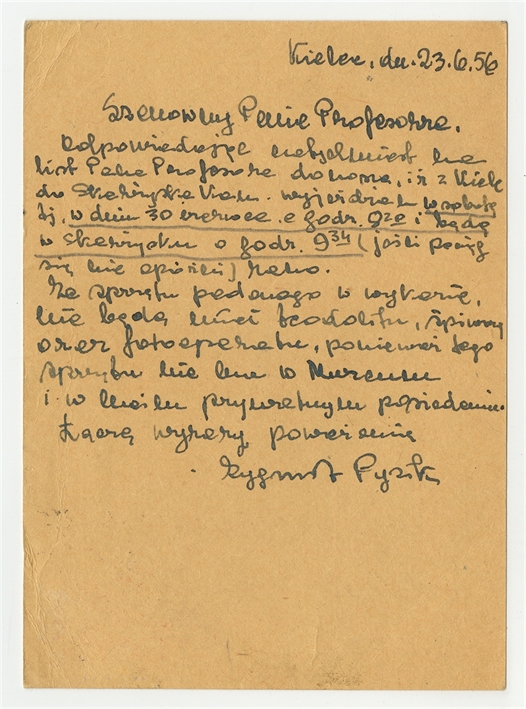 Kielce, dn. 23.6.56
Szanowny Panie Profesorze,
Odpowiadając natychmiast na
list Pana Profesora donoszę, iż z Kielc
do Skarżyska Kam. wyjeżdżam w sobotę
tj. w dniu 30 czerwca o godz. 9 20 i będę
w Skarżysku o godz. 9 34 (jeśli pociąg
się nie opóźni) rano.
Ze sprzętu podanego w wykazie,
nie będę mieć teodolitu, śpiwora
oraz fotoaparatu, ponieważ tego
sprzętu nie ma w Muzeum
i w moim prywatnym posiadaniu.
Łączę wyrazy poważania
Zygmunt Pyzik